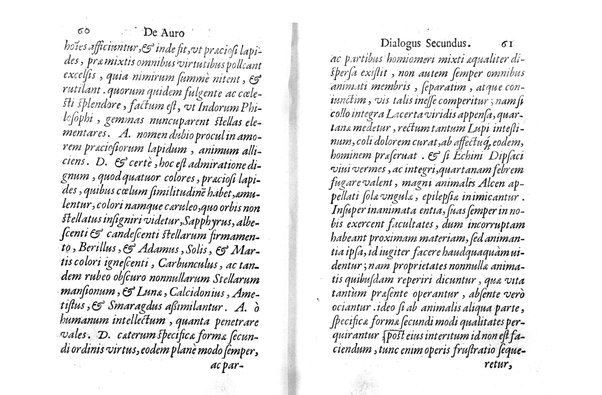 60 De Auro
homines afficiuntur, & inde fit, ut præciosi lapi-
des, præ mixtis omnibus virtutibus polleant
excelsis, quia nimirum summè nitent, & ru-
tilant. quorum quidem fulgente ac cæle-
sti splendore, factum est, vt Indorum Phi-
losophi, gemmas nuncuparent stellas ele-
mentares. A. nomen dubio procul in amo-
rem præciosorum lapidum, animum alli-
ciens. D. & certè, hoc est admiratione di-
gnum, quod quatuor colores, præciosi lapi-
des, quibus cælum similitudinẽ habet, æmu-
lentur, colori namque cæruleo, quo orbis non
stellatus insigniri videtur, Sapphyrus, albe-
scenti & candescenti stellarum firmamen-
to, Berillus, & Adamus, Solis, & Mar-
tis colori ignescenti, Carbunculus, ac tan-
dem rubeo obscuro nonnullarum Stellarum
mansionum, & Lunæ, Calcidonius, Ame-
tistus, & Smaragdus assimilantur. A. ô
humanum intellectum, quanta penetrare
vales. D. cæterum specificæ formæ secun-
di ordinis virtus, eodem planè modo semper,
ac par-
Dialogus Secundus. 61
ac partibus homiomeri mixti æqualiter di-
spersa existit, non autem semper omnibus
animati membris, separatim, atque con-
iunctim, vis talis inesse comperitur; nam si
collo integra Lacerta viridis appensa, quar-
tanæ medetur, rectum tantum Lupi intesti-
num, coli dolorem curat, ab affectuq; eodem,
hominem præseruat. & si Echini Dipsaci
viui vermes, ac integri, quartanam febrem
fugare valent, magni animalis Alcen ap-
pellati sola vngula, epilepsiæ inimicantur.
Insuper inanimata entia, suas semper in no-
bis exercent facultates, dum incorruptam
habent proximam materiam, sed animan-
tia ipsa, id iugiter facere haudquaquàm vi-
dentur; nam proprietates nonnullæ anima-
tis quibusdam reperiri dicuntur, quæ vi-
tæ tantùm præsente operantur, absente verò
ociantur. ideo si ab animalis aliqua parte,
specificæ formæ secundi modi qualitates per-
quirantur [post eius interitum id non est fa-
ciendum, tunc enim operis frustratio seque-
retur,